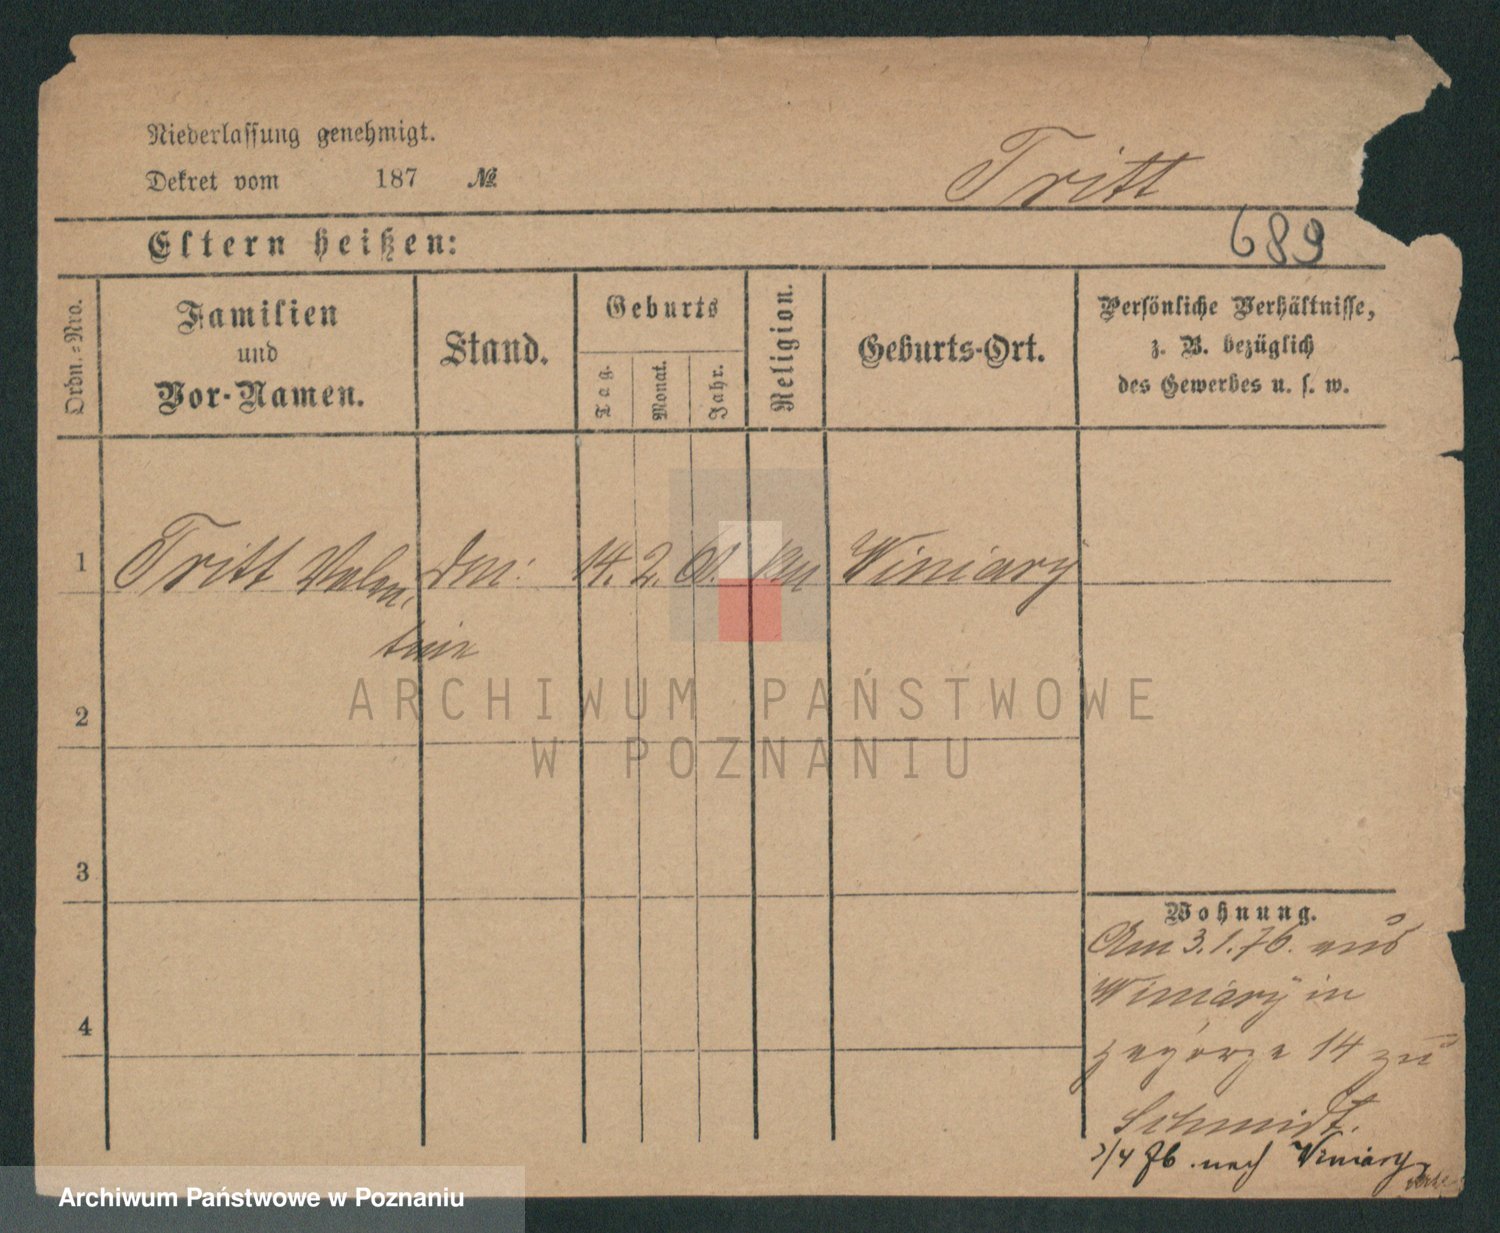 Niederlassung genehmigt.
Dekret vom 187 №
Tritt
Eltern heißen:
689
Ordn.-Nro.
Familien
und
Vor-Namen.
Stand.
Geburts
Tag.
Monat.
Jahr.
Religion.
Geburts-Ort.
Persönliche Verhältnisse,
z. B. bezüglich
des Gewerbes u. s. w.
1 Tritt Valen 14. 2. Winiary
tin
ARCHIWUM PAŃSTWOWE
W POZNANIU
2
3
4
Wohnung.
Am 3.1.76. aus
Winiary in
Zagorze 14 zu
Schmidt.
3/4 76. nach Winiary
Archiwum Państwowe w Poznaniu